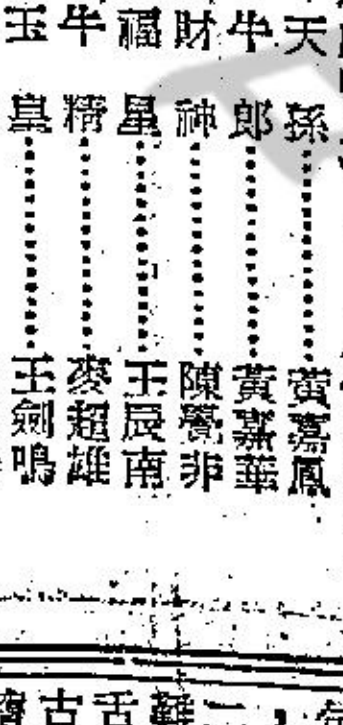 天孫……………黃嘉鳳
牛郎……………黃嘉華
財神……………陳覺非
福星……………王辰南
牛精……………麥超雄
玉皇……………王劍鳴